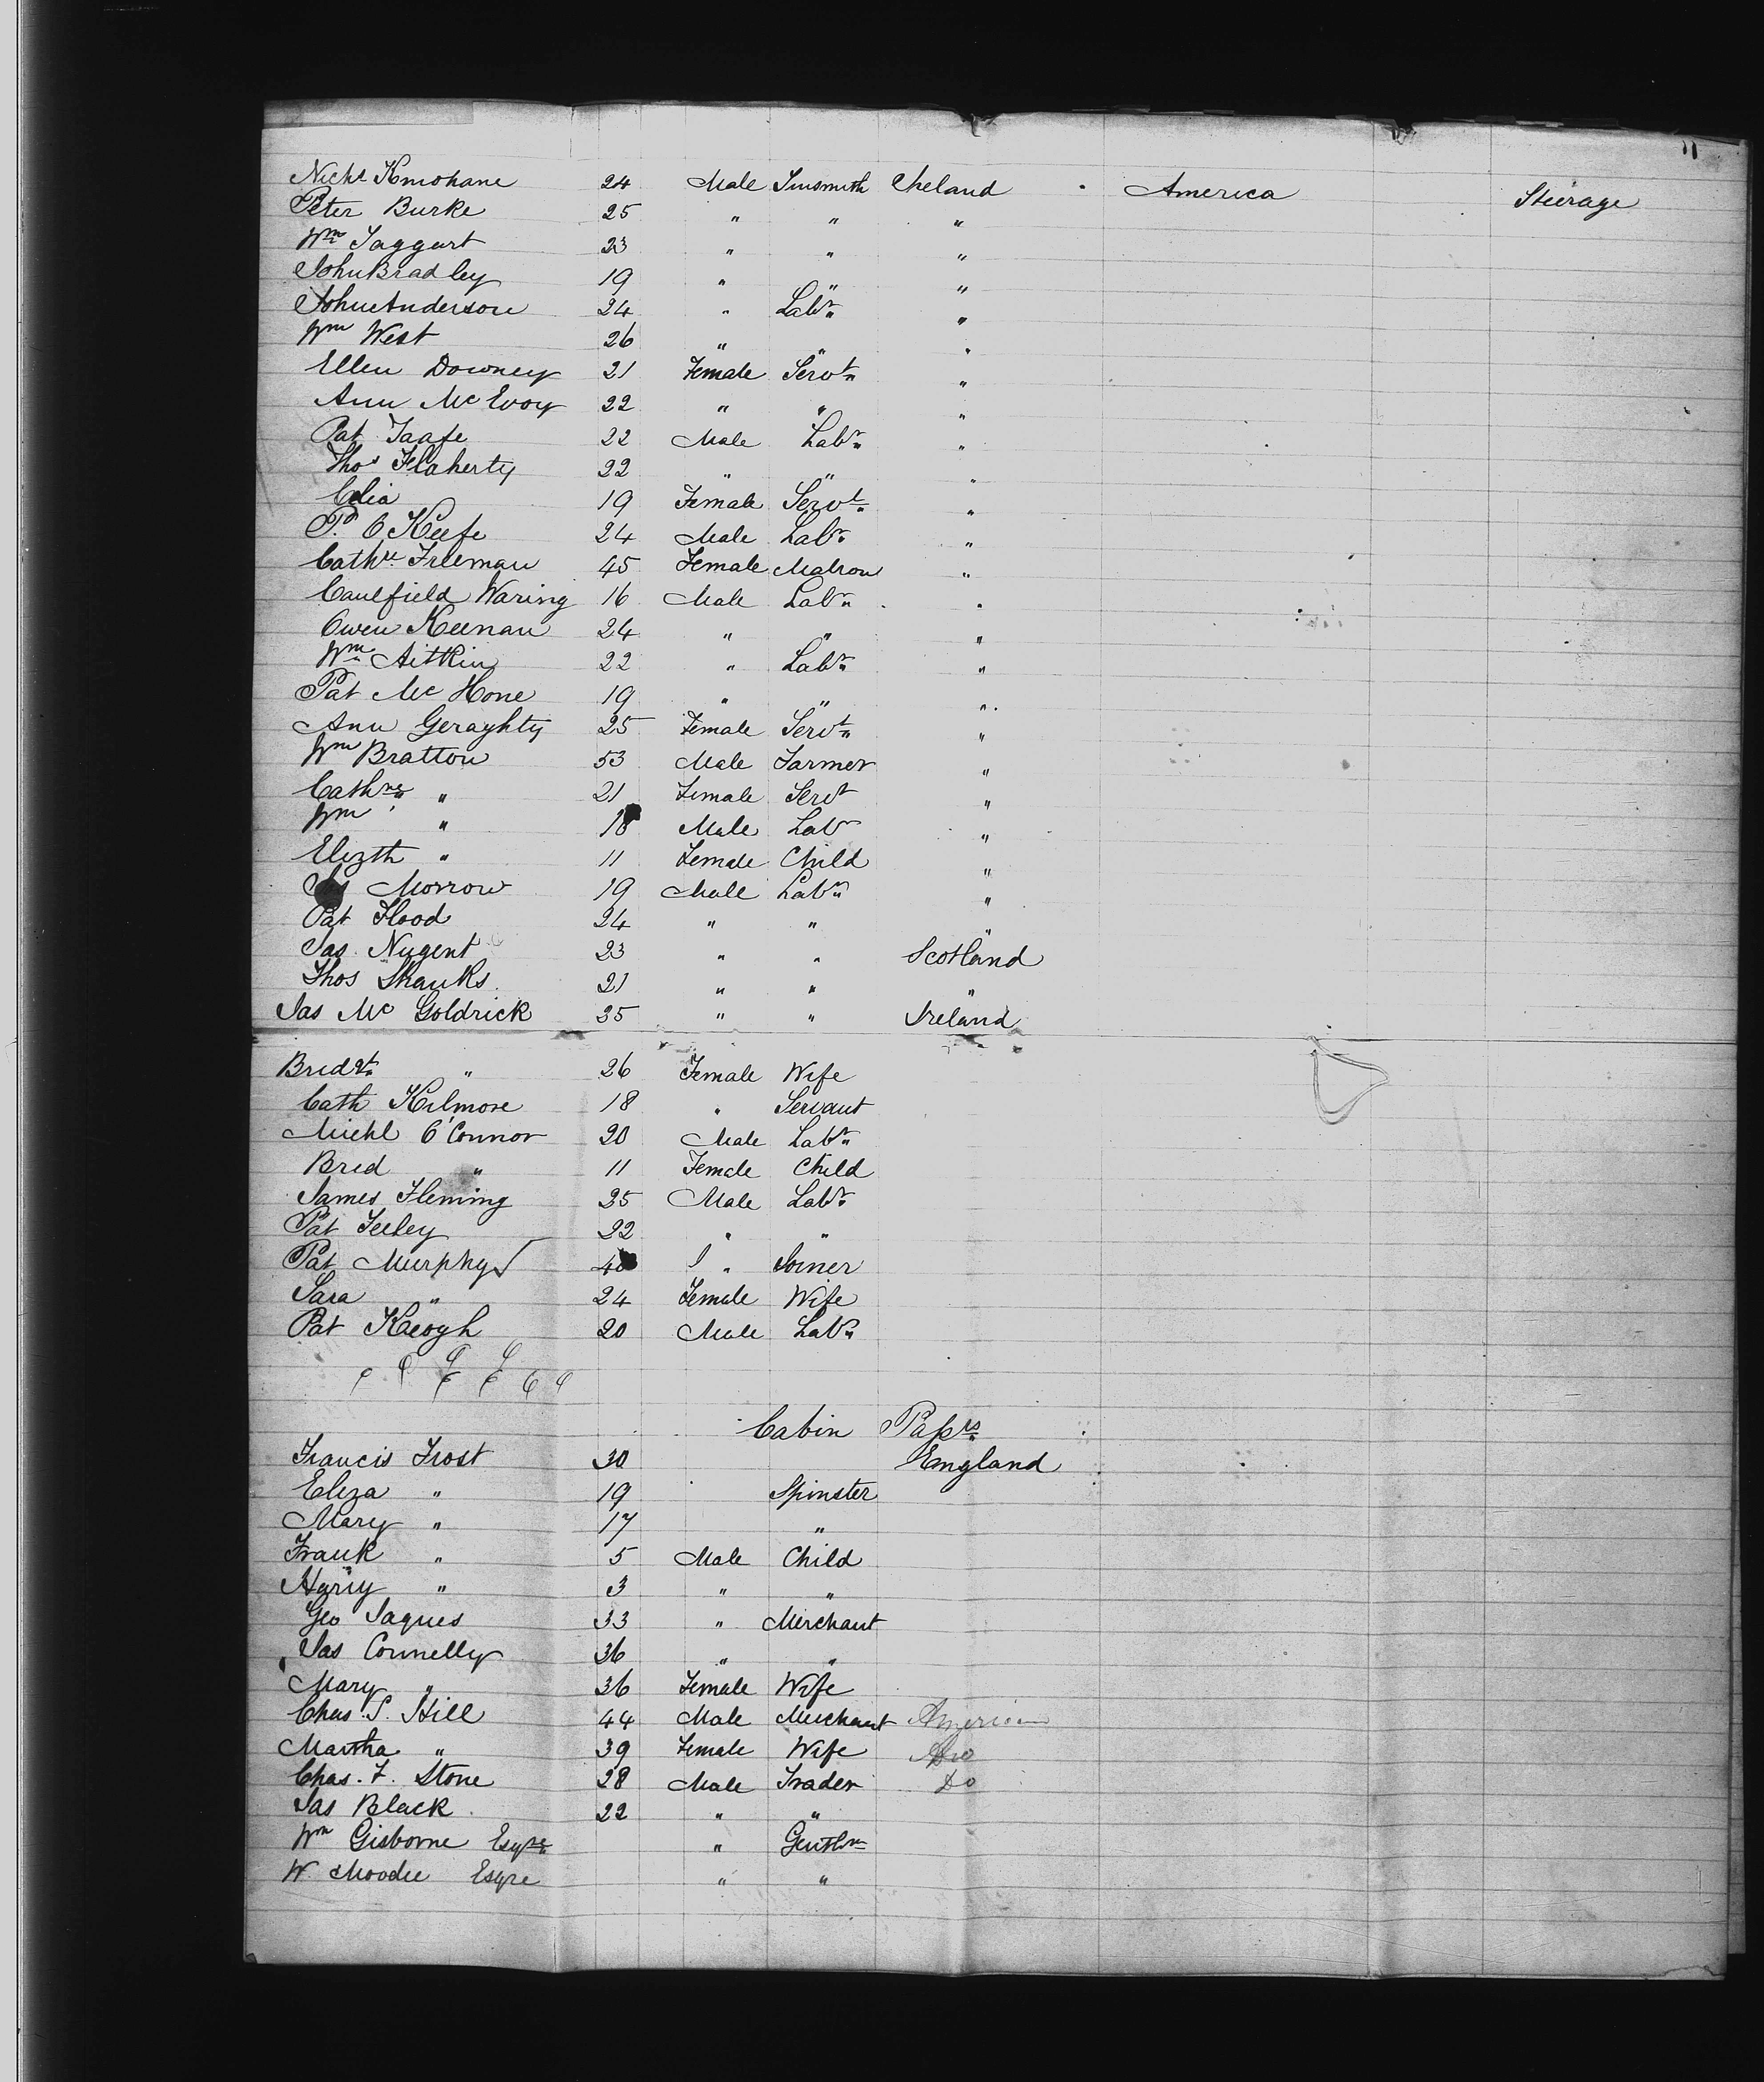 Nichs Kinshane 24 Male Tinsmith Ireland America Steerage
Peter Burke 25 " " "
Wm Taggart 23 " " "
John Bradley 19 " " "
John Anderson 24 " Labr "
Wm West 26 " " "
Ellen Downey 21 Female Servt "
Ann Mc Evoy 22 " " "
Pat Taafe 22 Male Labr "
Thos Flaherty 22 " " "
Celia 19 Female Servt "
P. O'Keefe 24 Male Labr "
Cathne Freeman 45 Female Matron "
Caulfield Waring 16 Male Labr "
Owen Keenan 24 " " "
Wm Aitkin 22 " Labr "
Pat Mc Hone 19 " " "
Ann Geraghty 25 Female Servt "
Wm Bratton 53 Male Farmer "
Cathne " 21 Female Servt "
Wm " 18 Male Labr "
Elizth " 11 Female Child "
Morrow 19 Male Labr "
Pat Flood 24 " " "
Jas. Nugent 23 " " Scotland
Thos Shanks 21 " " "
Jas Mc Goldrick 25 " " Ireland
Bridgt " 26 Female Wife
Cath Kilmore 18 " Servant
Michl O'Connor 20 Male Labr
Brid " 11 Female Child
James Fleming 25 Male Labr
Pat Feeley 22 " "
Pat Murphy " Joiner
Sara " 24 Female Wife
Pat Keogh 20 Male Labr
Cabin Passrs
Francis Frost 30 England
Eliza " 19 Spinster
Mary " 17 "
Frank " 5 Male Child
Harry " 3 " "
Geo Jaques 33 " Merchant
Jas Connelly 36 " "
Mary " 36 Female Wife
Chas. S. Hill 44 Male Merchant American
Martha " 39 Female Wife Do
Chas. F. Stone 28 Male Trader Do
Jas Black 22 " "
Wm Gisborne Esqre " Gentln
W. Moodie Esqre " "